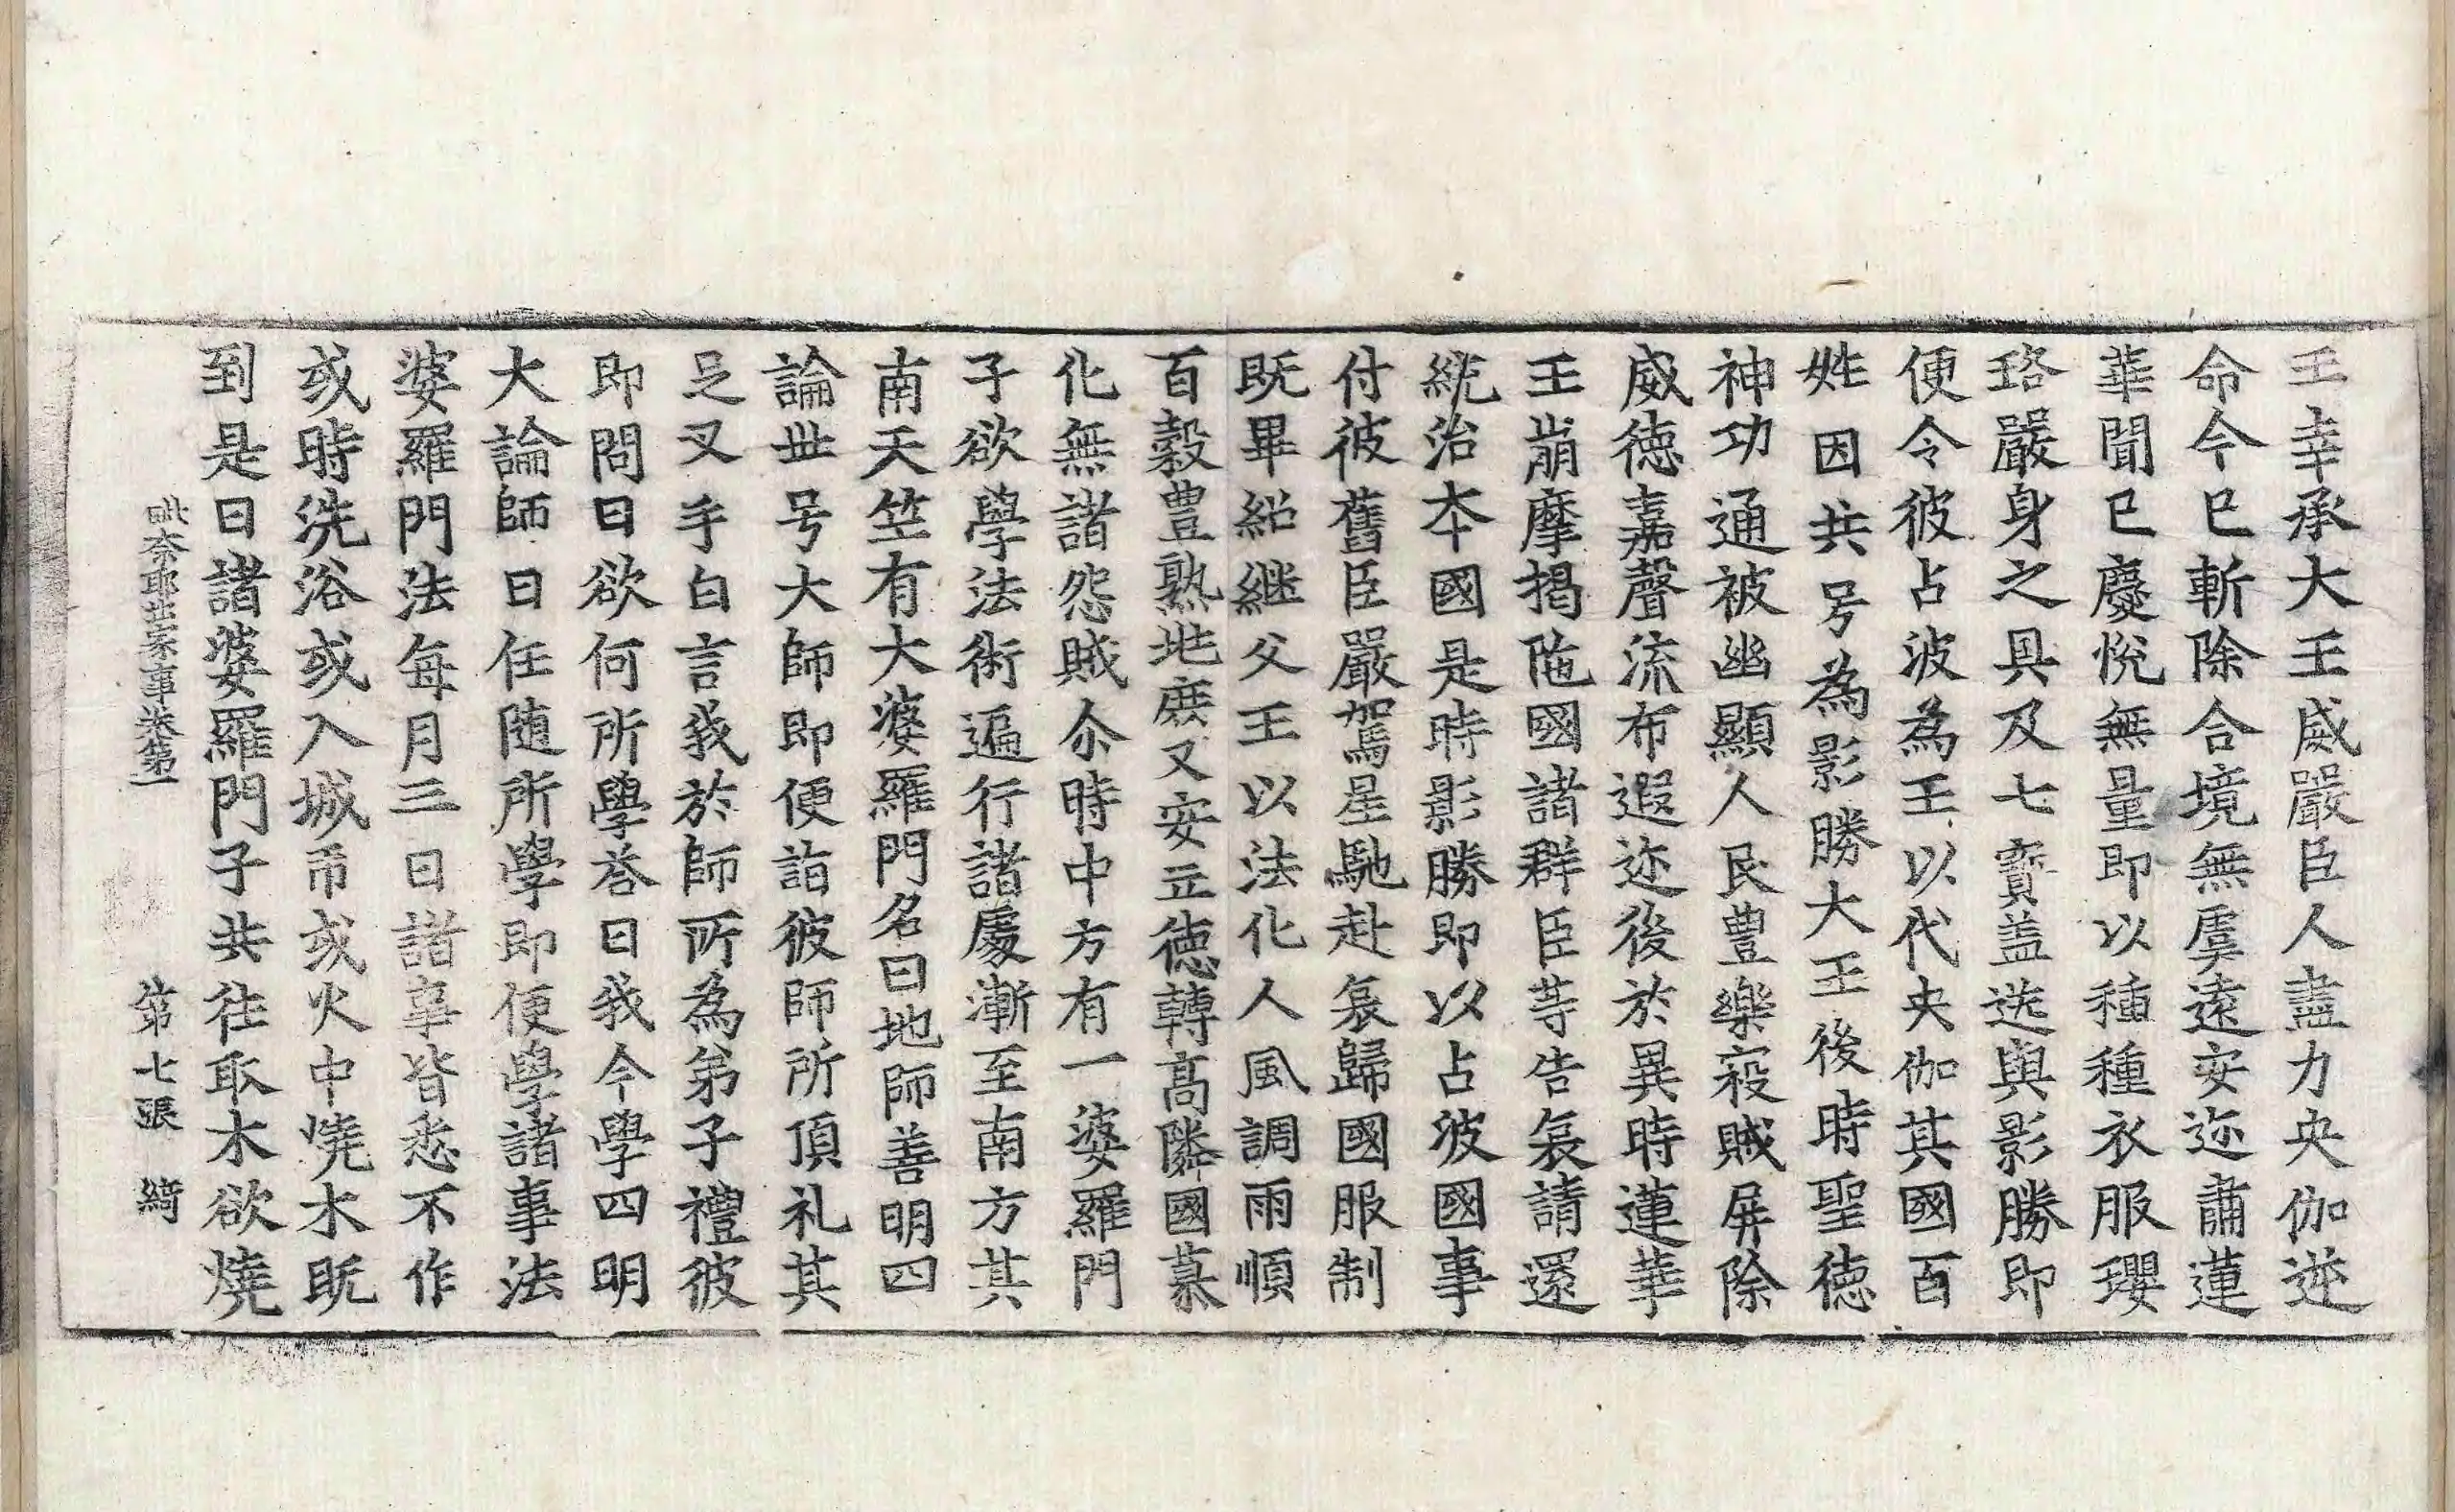 王幸承大王威嚴臣人盡力央伽逆
命今已斬除合境無虞遠安迩肅蓮
華聞已慶悅無量即以種種衣服瓔
珞嚴身之具及七寳盖送與影勝即
便令彼占波為王以代央伽其國百
姓因共号為影勝大王後時聖德
神功通被幽顯人民豊樂寇賊屏除
威徳嘉聲流布遐迩後於異時蓮華
王崩摩揭陁國諸群臣等告哀請還
統治本國是時影勝即以占波國事
付彼舊臣嚴駕星馳赴哀歸國服制
既畢紹継父王以法化人風調雨順
百糓豊熟地庶又安立徳轉髙隣國慕
化無諸怨賊尒時中方有一婆羅門
子欲學法術遍行諸處漸至南方其
南天竺有大婆羅門名曰地師善明四
論世号大師即便詣彼師所頂礼其
足叉手白言我於師所為弟子禮彼
即問曰欲何所學荅曰我今學四明
大論師曰任随所學即便學諸事法
婆羅門法每月三日諸事皆悉不作
或時洗浴或入城帀或火中燒木既
到是日諸婆羅門子共往取木欲燒
毗奈耶出家事卷第一 第七張 綺